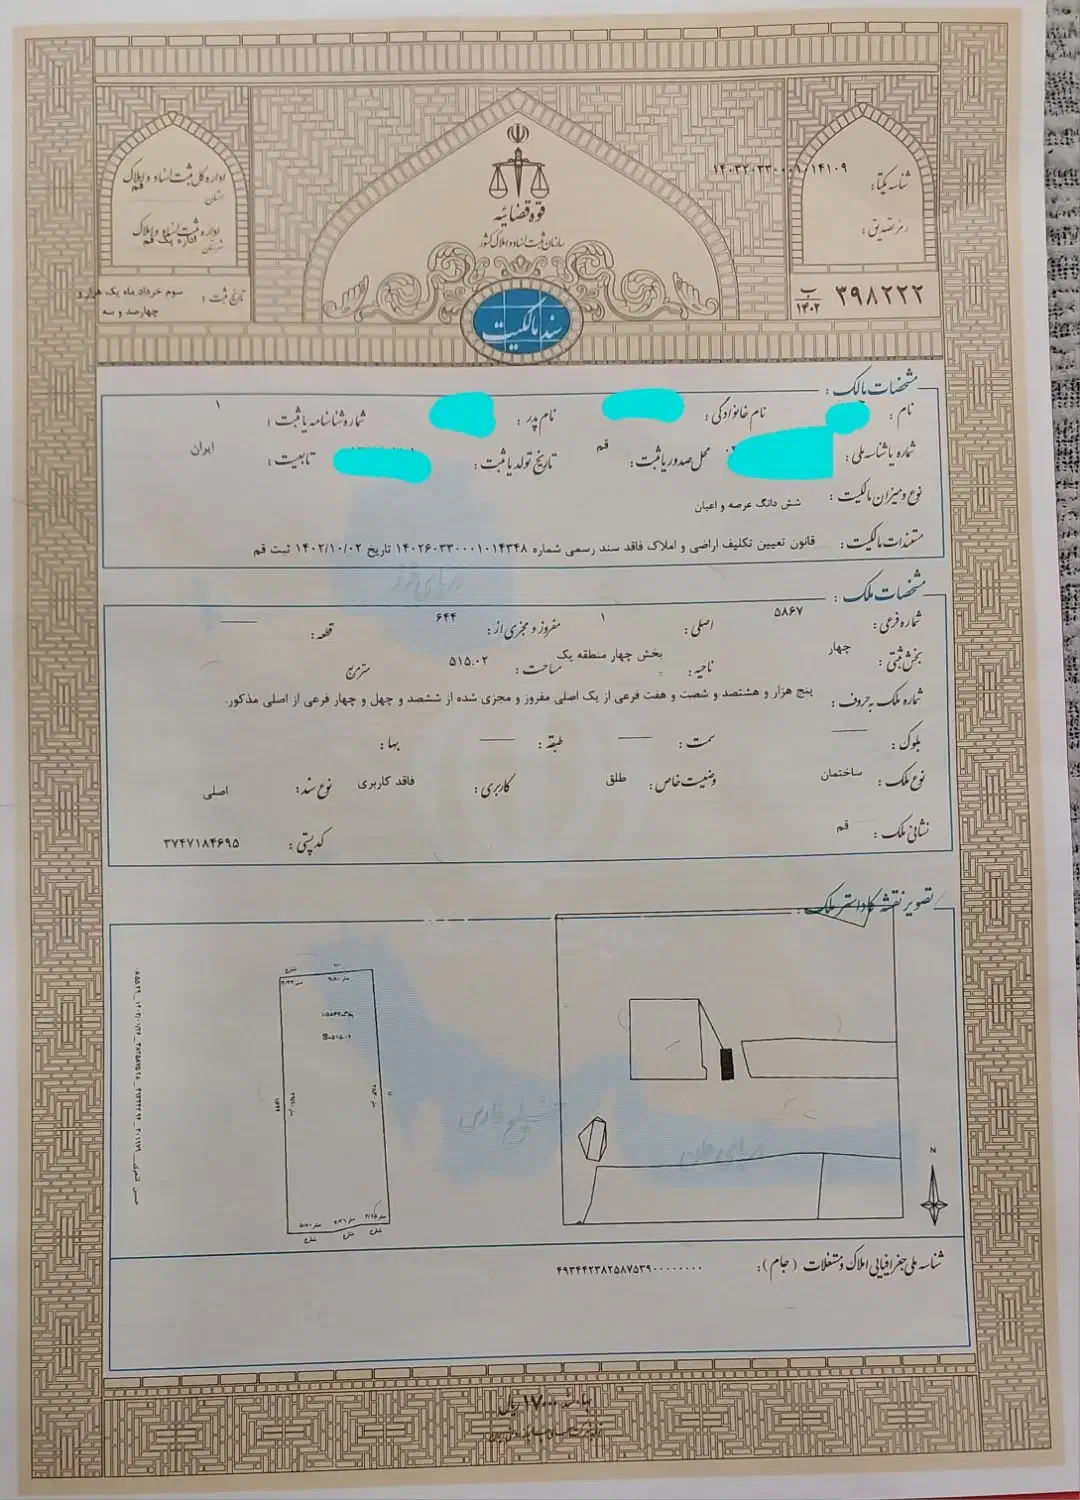 اداره کل ثبت اسناد و املاک
استان قم
اداره ثبت اسناد و املاک
شهرستان اداره یک قم
تاریخ ثبت : سوم خرداد ماه یک هزار و
چهارصد و سه
قوه قضائیه
سازمان ثبت اسناد و املاک کشور
سند مالکیت
شناسه یکتا: ۱۴۰۳۲۰۳۳۰۰۰۹۰۱۴۱۰۹
رمز تصدیق :
ب
۱۴۰۲
۳۹۸۲۲۲
مشخصات مالک :
نام : نام خانوادگی : نام پدر : شماره شناسنامه یا ثبت : ۱
شماره یا شناسه ملی : محل صدور یا ثبت : قم تاریخ تولد یا ثبت : تابعیت : ایران
نوع و میزان مالکیت : شش دانگ عرصه و اعیان
مستندات مالکیت : قانون تعیین تکلیف اراضی و املاک فاقد سند رسمی شماره ۱۴۰۲۶۰۳۳۰۰۰۱۰۱۴۳۴۸ تاریخ ۱۴۰۲/۱۰/۰۲ ثبت قم
دریای خزر
مشخصات ملک :
شماره فرعی : ۵۸۶۷ اصلی : ۱ مفروز و مجزی از : ۶۴۴ قطعه :
بخش ثبتی : چهار ناحیه : بخش چهار منطقه یک مساحت : ۵۱۵.۰۲ مترمربع
شماره ملک به حروف : پنج هزار و هشتصد و شصت و هفت فرعی از یک اصلی مفروز و مجزی شده از ششصد و چهل و چهار فرعی از اصلی مذکور.
بلوک : سمت : طبقه : بها :
نوع ملک : ساختمان وضعیت خاص : طلق کاربری : فاقد کاربری نوع سند : اصلی
نشانی ملک : قم کد پستی : ۳۷۴۷۱۸۴۶۹۵
تصویر نقشه کاداستر ملک :
شارع
شارع شارع شارع
خلیج فارس
دریای عمان
N
شناسه ملی جغرافیایی املاک و مستغلات (جام) : ۴۹۳۴۴۲۳۸۲۵۸۷۵۳۹۰۰۰۰۰۰۰۰
بهاء سند ۱۷۰۰۰ ریال